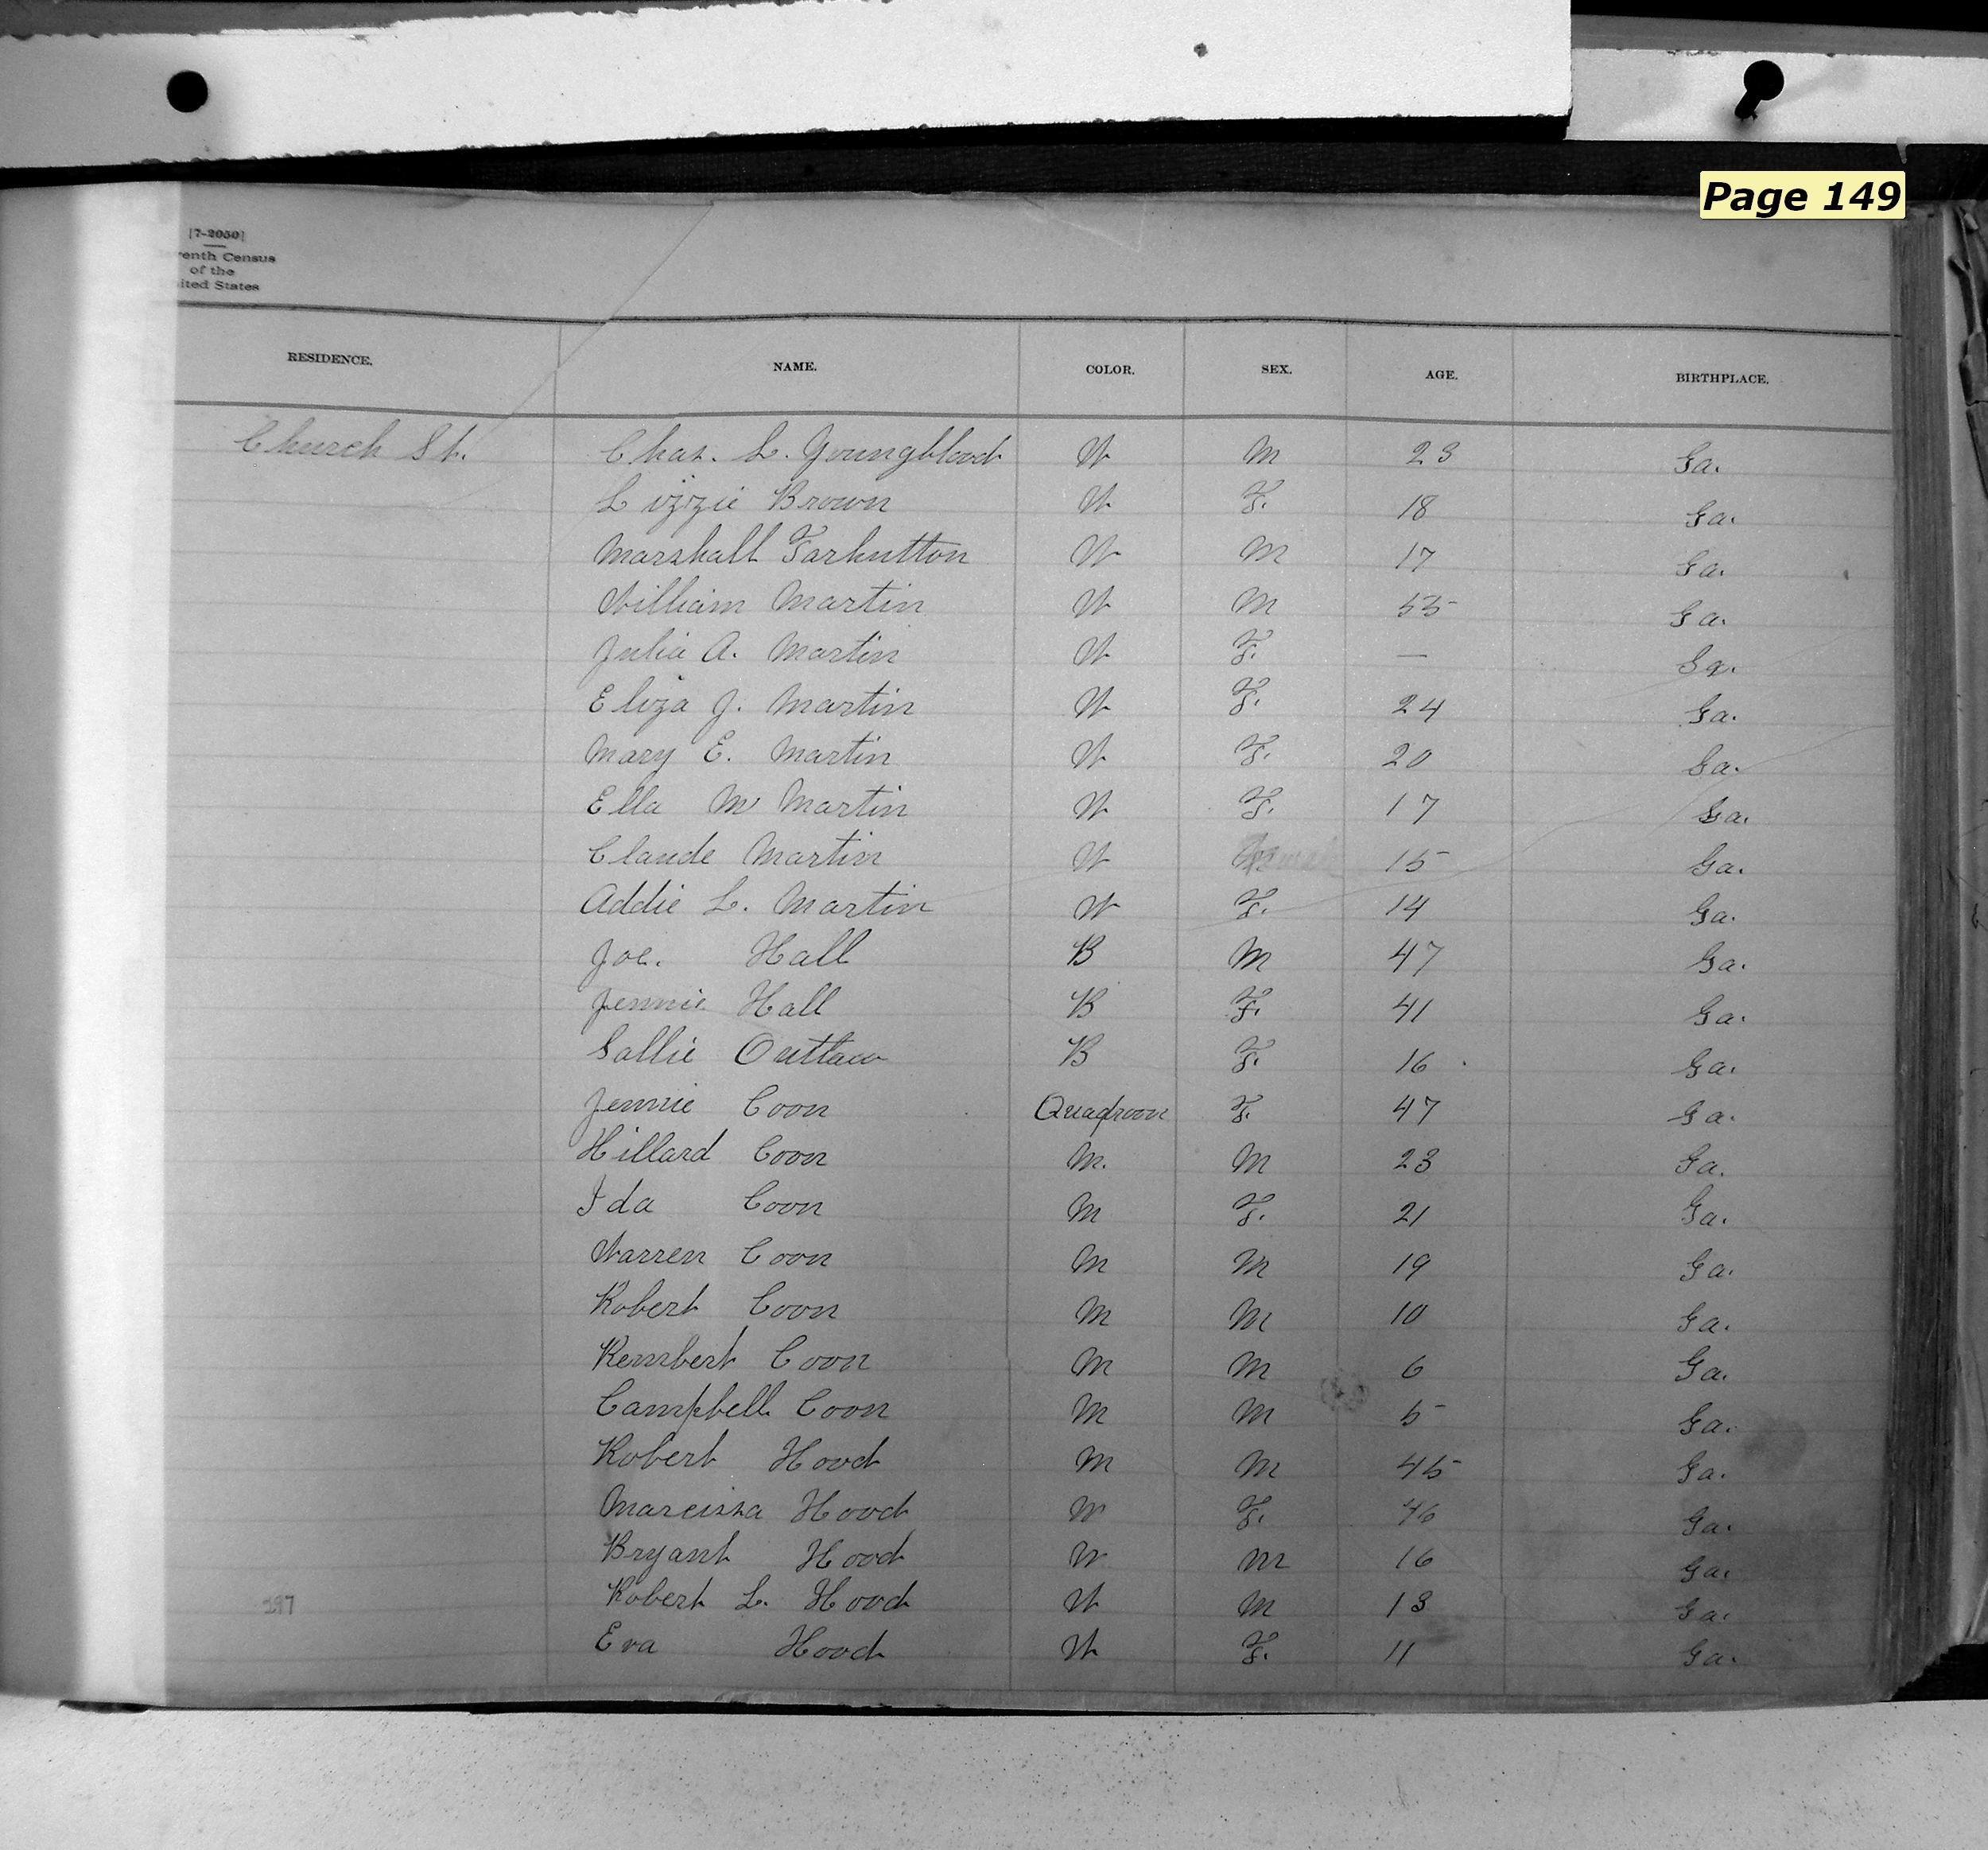 Page 149
[7-2050]
venth Census
of the
ited States
RESIDENCE. NAME. COLOR. SEX. AGE. BIRTHPLACE.
Church St. Chas. L. Youngblood W M 23 Ga.
Lizzie Brown W F. 18 Ga.
Marshall Tarhutton W M 17 Ga.
William Martin W M 55 Ga.
Julia A. Martin W F. — Ga.
Eliza J. Martin W F. 24 Ga.
Mary E. Martin W F. 20 Ga.
Ella M Martin W F. 17 Ga.
Claude Martin W 15 Ga.
Addie L. Martin W F. 14 Ga.
Joe. Hall B M 47 Ga.
Jennie Hall B F. 41 Ga.
Sallie Outlaw B F. 16 Ga.
Jennie Coon Quadroon F. 47 Ga.
Hillard Coon M. M 23 Ga.
Ida Coon M F. 21 Ga.
Warren Coon M M 19 Ga.
Robert Coon M M 10 Ga.
Rembert Coon M M 6 Ga.
Campbell Coon M M 5 Ga.
Robert Hood M M 45 Ga.
Marcissa Hood W F. 46 Ga.
Bryant Hood W M 16 Ga.
297 Robert L. Hood W M 13 Ga.
Eva Hood W F. 11 Ga.